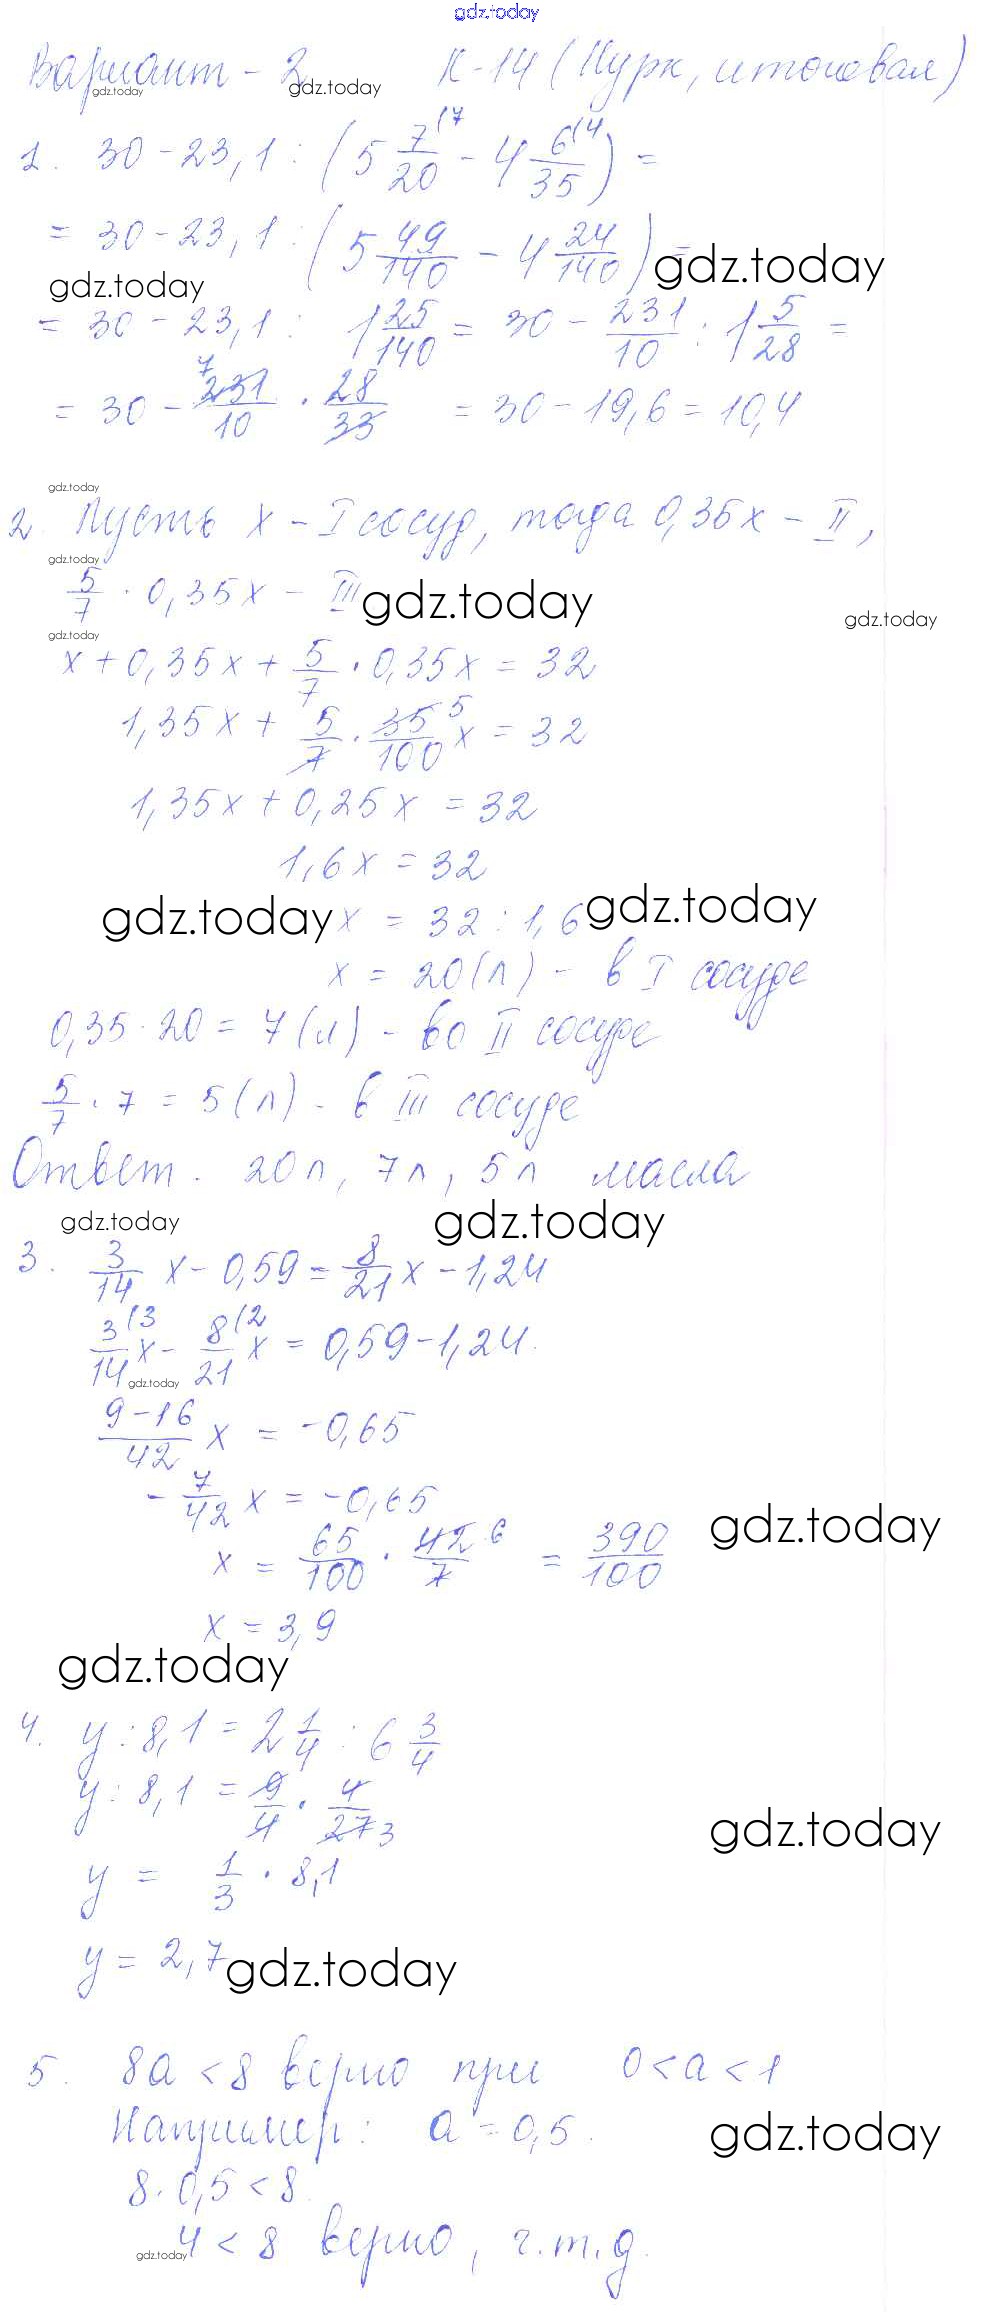 gdz.today
Вариант - 2 К-14 (Нурк, итоговая)
gdz.today gdz.today
1. 30 - 23,1 : (5 7/20 (7 - 4 6/35 (4) =
= 30 - 23,1 : (5 49/140 - 4 24/140) =
gdz.today gdz.today
= 30 - 23,1 : 1 25/140 = 30 - 231/10 : 1 5/28 =
= 30 - 7 231/10 · 28/33 = 30 - 19,6 = 10,4
gdz.today
2. Пусть x - I сосуд, тогда 0,35x - II,
gdz.today
5/7 · 0,35x - III
gdz.today gdz.today
gdz.today
x + 0,35x + 5/7 · 0,35x = 32
1,35x + 5/7 · 35/100 5 x = 32
1,35x + 0,25x = 32
1,6x = 32
gdz.today x = 32 : 1,6 gdz.today
x = 20 (л) - в I сосуде
0,35 · 20 = 7 (л) - во II сосуде
5/7 · 7 = 5 (л) - в III сосуде
Ответ. 20л, 7л, 5л масла
gdz.today gdz.today
3. 3/14 x - 0,59 = 8/21 x - 1,24
3/14 (3 x - 8/21 (2 x = 0,59 - 1,24.
gdz.today
9-16/42 x = -0,65
- 7/42 x = -0,65
gdz.today
x = 65/100 · 42/7 6 = 390/100
x = 3,9
gdz.today
4. y : 8,1 = 2 1/4 : 6 3/4
y : 8,1 = 9/4 · 4/27 3
gdz.today
y = 1/3 · 8,1
y = 2,7
gdz.today
5. 8a < 8 верно при 0 < a < 1
Например: a = 0,5.
gdz.today
8 · 0,5 < 8
4 < 8 верно, ч.т.д.
gdz.today